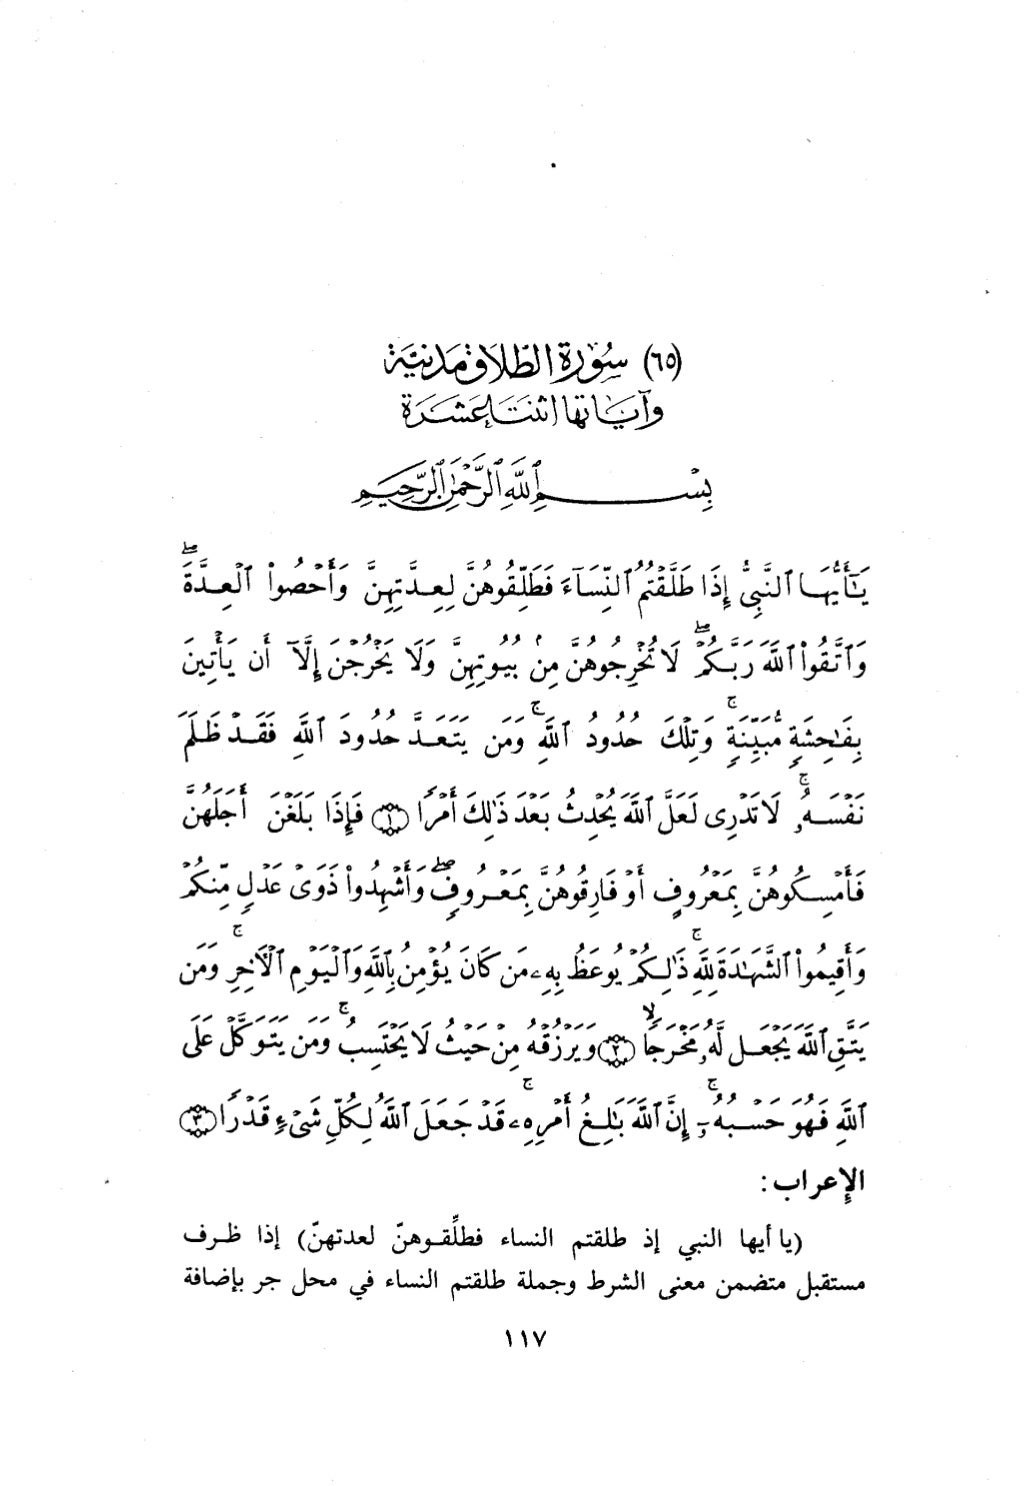 (٦٥) سُورَة الطَّلَاقِ مَدَنِيَّة
وَآيَاتهَا اثْنَتَا عَشَرَة
بِسْمِ ٱللَّهِ ٱلرَّحْمَٰنِ ٱلرَّحِيمِ
يَٰٓأَيُّهَا ٱلنَّبِىُّ إِذَا طَلَّقْتُمُ ٱلنِّسَآءَ فَطَلِّقُوهُنَّ لِعِدَّتِهِنَّ وَأَحْصُوا۟ ٱلْعِدَّةَ ۖ
وَٱتَّقُوا۟ ٱللَّهَ رَبَّكُمْ ۖ لَا تُخْرِجُوهُنَّ مِنۢ بُيُوتِهِنَّ وَلَا يَخْرُجْنَ إِلَّآ أَن يَأْتِينَ
بِفَٰحِشَةٍ مُّبَيِّنَةٍ ۚ وَتِلْكَ حُدُودُ ٱللَّهِ ۚ وَمَن يَتَعَدَّ حُدُودَ ٱللَّهِ فَقَدْ ظَلَمَ
نَفْسَهُۥ ۚ لَا تَدْرِى لَعَلَّ ٱللَّهَ يُحْدِثُ بَعْدَ ذَٰلِكَ أَمْرًا ﴿١﴾ فَإِذَا بَلَغْنَ أَجَلَهُنَّ
فَأَمْسِكُوهُنَّ بِمَعْرُوفٍ أَوْ فَارِقُوهُنَّ بِمَعْرُوفٍ ۖ وَأَشْهِدُوا۟ ذَوَىْ عَدْلٍ مِّنكُمْ
وَأَقِيمُوا۟ ٱلشَّهَٰدَةَ لِلَّهِ ۚ ذَٰلِكُمْ يُوعَظُ بِهِۦ مَن كَانَ يُؤْمِنُ بِٱللَّهِ وَٱلْيَوْمِ ٱلْءَاخِرِ ۚ وَمَن
يَتَّقِ ٱللَّهَ يَجْعَل لَّهُۥ مَخْرَجًا ۙ ﴿٢﴾ وَيَرْزُقْهُ مِنْ حَيْثُ لَا يَحْتَسِبُ ۚ وَمَن يَتَوَكَّلْ عَلَى
ٱللَّهِ فَهُوَ حَسْبُهُۥٓ ۚ إِنَّ ٱللَّهَ بَٰلِغُ أَمْرِهِۦ ۚ قَدْ جَعَلَ ٱللَّهُ لِكُلِّ شَىْءٍ قَدْرًا ﴿٣﴾
الإِعراب:
(يا أيها النبي إذ طلقتم النساء فطلِّقوهنّ لعدتهنّ) إذا ظرف
مستقبل متضمن معنى الشرط وجملة طلقتم النساء في محل جر بإضافة
١١٧